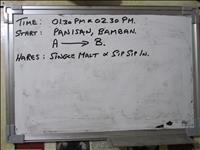 TIME: 01.30 PM & 02.30 PM.
START: PANISAN, BAMBAN.
A → B.
HARES: SINGLE MALT & SIP SIP IN.